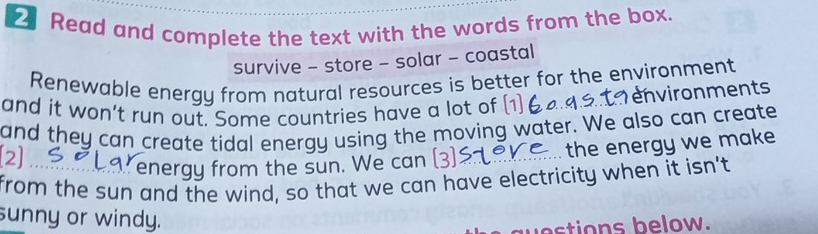 2 Read and complete the text with the words from the box.
survive – store – solar – coastal
Renewable energy from natural resources is better for the environment
and it won't run out. Some countries have a lot of [1] coastal environments
and they can create tidal energy using the moving water. We also can create
[2] solar energy from the sun. We can [3] store the energy we make
from the sun and the wind, so that we can have electricity when it isn't
sunny or windy.
questions below.